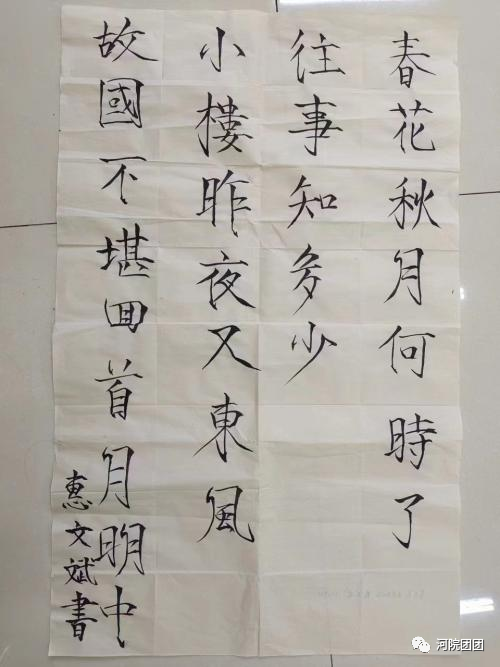 春花秋月何時了
往事知多少
小樓昨夜又東風
故國不堪回首月明中
惠文斌書
河院团团